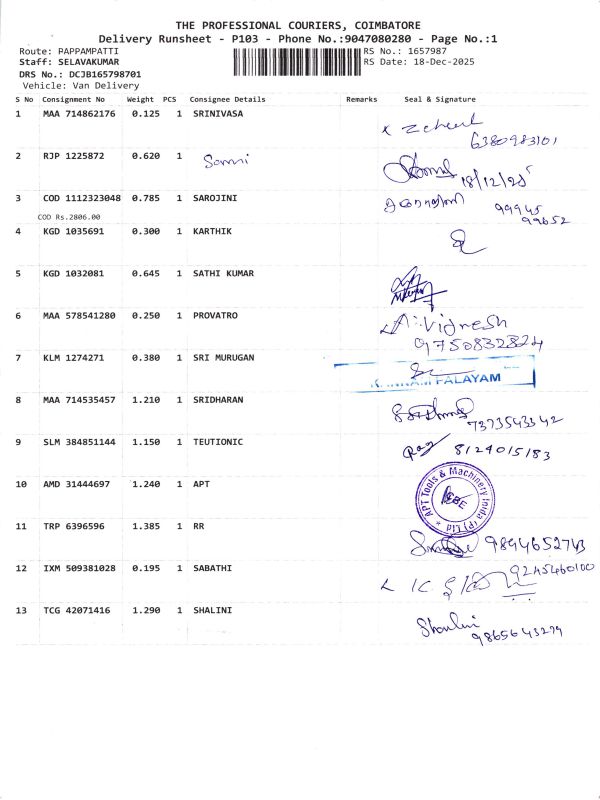 THE PROFESSIONAL COURIERS, COIMBATORE
Delivery Runsheet - P103 - Phone No.:9047080280 - Page No.:1
Route: PAPPAMPATTI RS No.: 1657987
Staff: SELAVAKUMAR RS Date: 18-Dec-2025
DRS No.: DCJB165798701
Vehicle: Van Delivery
S No Consignment No Weight PCS Consignee Details Remarks Seal & Signature
1 MAA 714862176 0.125 1 SRINIVASA
6380983101
2 RJP 1225872 0.620 1
18/12/25
3 COD 1112323048 0.785 1 SAROJINI
99945
99652
COD Rs.2806.00
4 KGD 1035691 0.300 1 KARTHIK
5 KGD 1032081 0.645 1 SATHI KUMAR
6 MAA 578541280 0.250 1 PROVATRO
A. Vignesh
9750832824
7 KLM 1274271 0.380 1 SRI MURUGAN
PALAYAM
8 MAA 714535457 1.210 1 SRIDHARAN
7373543342
9 SLM 384851144 1.150 1 TEUTIONIC
8124015183
10 AMD 31444697 1.240 1 APT
APT Tools & Machinery India (P) Ltd
CBE
11 TRP 6396596 1.385 1 RR
9894652743
12 IXM 509381028 0.195 1 SABATHI
9245460100
13 TCG 42071416 1.290 1 SHALINI
Shalini
9865643299